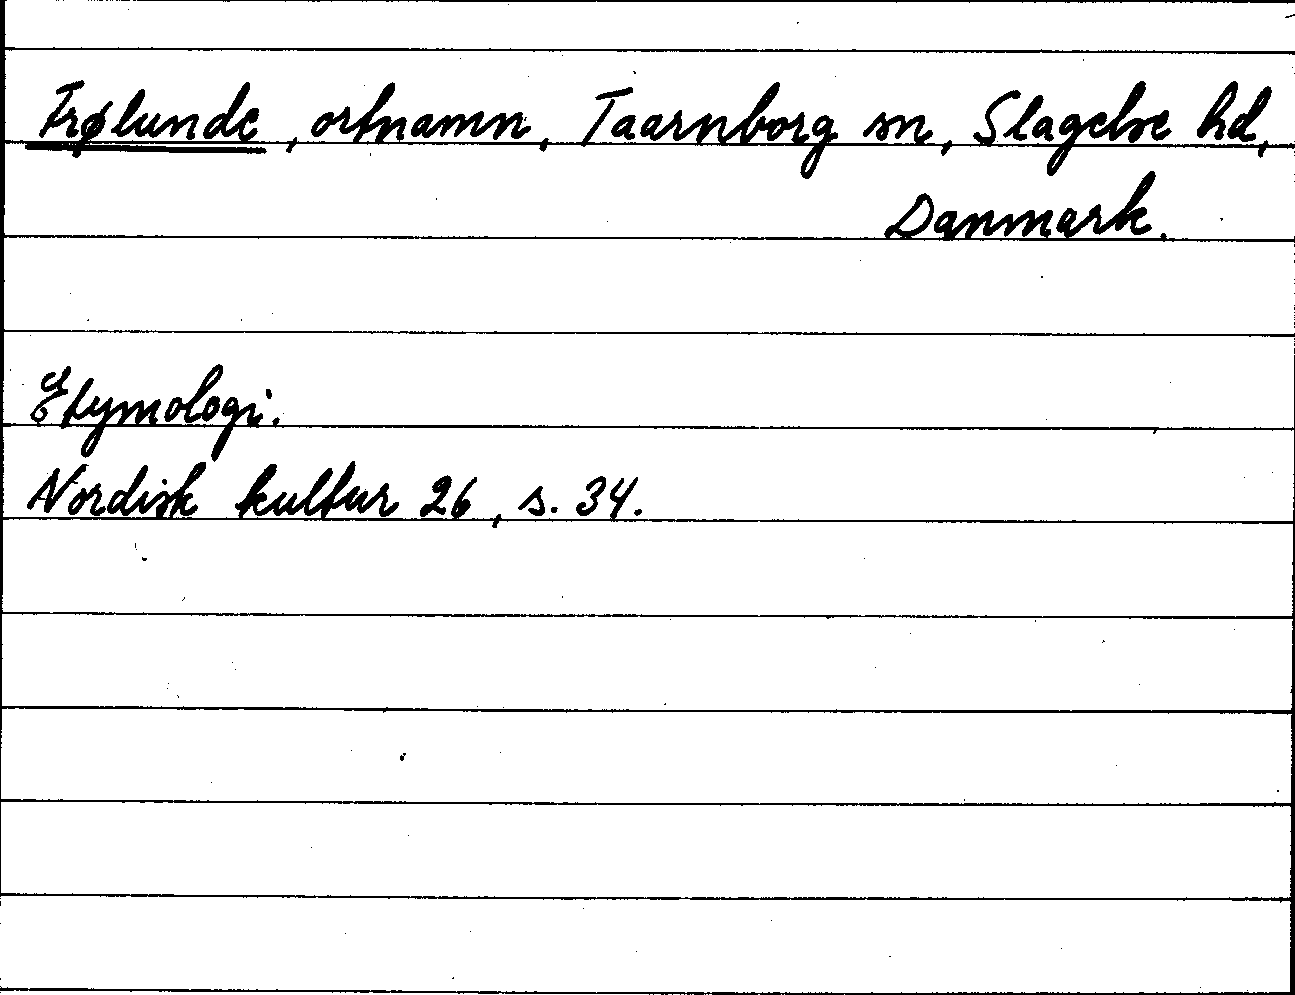 Frølunde, ortnamn, Taarnborg sn, Slagelse hd,
Danmark.
Etymologi.
Nordisk kultur 26, s. 34.